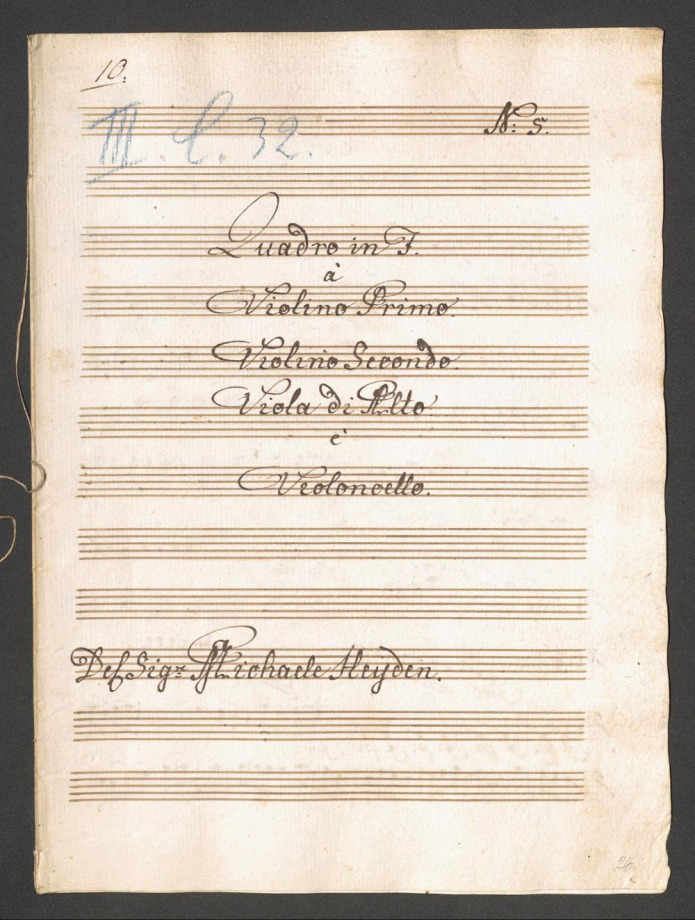 10.
III. C. 32.
N: 5.
Quadro in F.
à
Violino Primo.
Violino Secondo.
Viola di Alto
è
Violoncello.
Del Sigr Michaele Heyden.
26